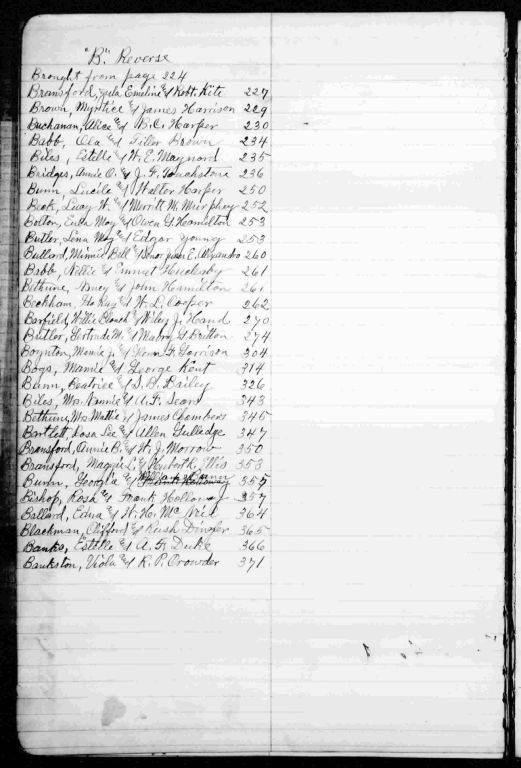 "B." Reverse
Brought from page 224
Bransford, Zeila Emeline & Robt. Kite 227
Brown, Myrtice & James Harrison 229
Buchanan, Alice & B.C. Harper 230
Babb, Ola & Tiller Brown 234
Biles, Estelle & W. E. Maynard 235
Bridges, Annie O. & J. F. Touchstone 236
Bunn, Lucile & Walter Harper 250
Beck, Lucy W. & Merritt M. Murphey 252
Bolton, Eula May & Owen G. Hamilton 253
Butler, Lena May & Edgar Young 253
Bullard, Minnie Bell & Junius E. Alexander 260
Babb, Nellie & Emmet Huckaby 261
Bethune, Nancy & John Hamilton 261
Beckham, Flo Ruy & W. L. Cooper 262
Barfield, Willie Blanch & Wiley J. Hand 270
Butler, Gertrude M. & Mabry G. Britton 274
Boynton, Mamie J. & John F. Garrison 304
Bogs, Mamie & George Kent 314
Bunn, Beatrice & S. B. Bailey 326
Biles, Mrs. Nannie & A. F. Sears 343
Bethune, Mrs Mattie & James Chambers 345
Bartlett, Rosa Lee & Allen Gulledge 347
Bransford, Annie B. & W. J. Morrow 350
Bransford, Maggie L. & Hubert K. Ellis 353
Bunn, Georgia & William Varner 355
Bishop, Rosa & Frank Holloway 357
Ballard, Edna & W. H. McNeil 364
Blackman, Clifford & Rush Dingler 365
Banks, Estelle & A. R. Duke 366
Bankston, Viola & R. P. Crowder 371